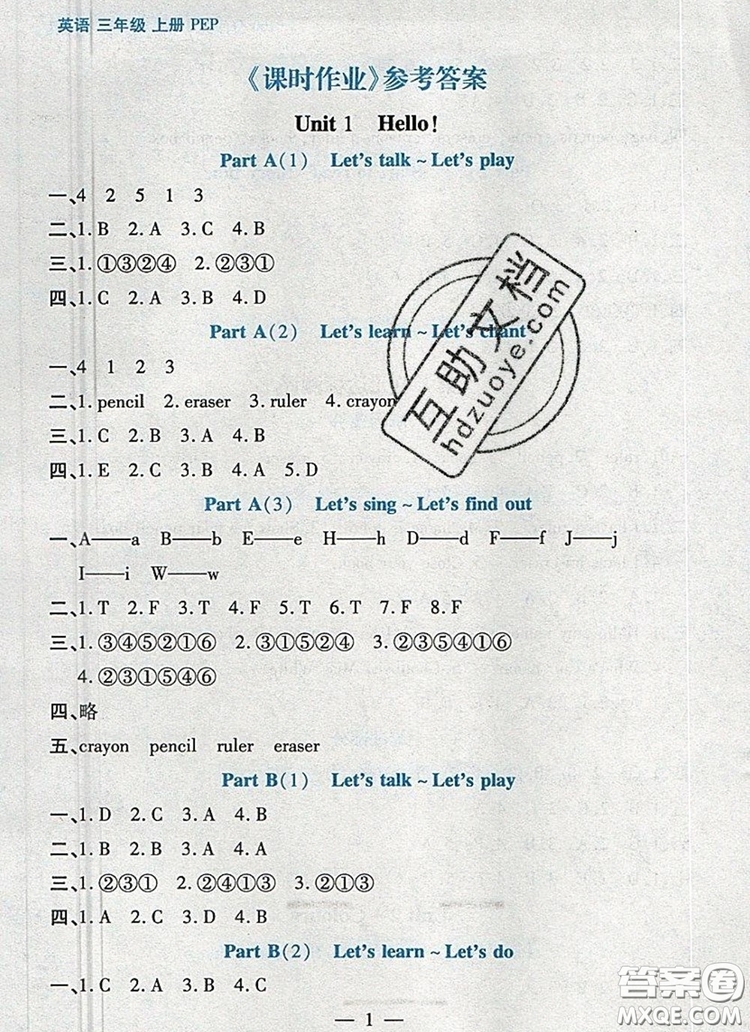 英语 三年级 上册 PEP
《课时作业》参考答案
Unit 1 Hello!
Part A(1) Let's talk ~ Let's play
一、4 2 5 1 3
二、1. B 2. A 3. C 4. B
三、1. ①③②④ 2. ②③①
四、1. C 2. A 3. B 4. D
Part A(2) Let's learn ~ Let's chant
一、4 1 2 3
二、1. pencil 2. eraser 3. ruler 4. crayon
三、1. C 2. B 3. A 4. B
四、1. E 2. C 3. B 4. A 5. D
Part A(3) Let's sing ~ Let's find out
一、A——a B——b E——e H——h D——d F——f J——j
I——i W——w
二、1. T 2. F 3. T 4. F 5. T 6. F 7. T 8. F
三、1. ③④⑤②①⑥ 2. ③①⑤②④ 3. ②③⑤④①⑥
4. ②③①⑤④⑥
四、略
五、crayon pencil ruler eraser
Part B(1) Let's talk ~ Let's play
一、1. D 2. C 3. A 4. B
二、1. B 2. B 3. A 4. A
三、1. ②③① 2. ②④①③ 3. ②①③
四、1. A 2. C 3. D 4. B
Part B(2) Let's learn ~ Let's do
一、1. C 2. A 3. B 4. C
— 1 —
互助文档
hdzuoye.com
答案圈
MXQE.COM